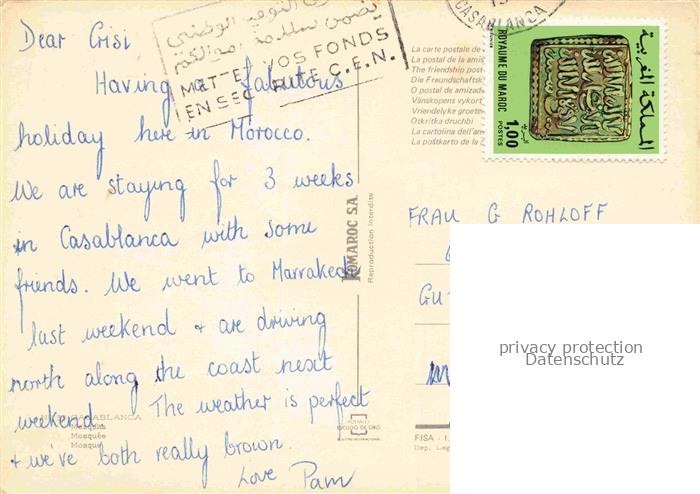 Dear Crisi
Having a fabulous
holiday here in Morocco.
We are staying for 3 weeks
in Casablanca with some
friends. We went to Marrakech
last weekend + are driving
north along the coast next
weekend. The weather is perfect
+ we've both really brown.
Love Pam
METTEZ VOS FONDS
EN SEC RITE C.E.N.
CASABLANCA
ROYAUME DU MAROC
1,00
POSTES
المملكة المغربية
La carte postale de
La postal de la amis
The friendship post
Die Freundschafts
O postal de amizade
Vänskapens vykort
Vriendelyke groete
Otkritka druchbi
La cartolina dell'am
La postkarto de la
ROMAROC S.A.
Reproduction interdite
FRAU G ROHLOFF
GU
privacy protection
Datenschutz
CASABLANCA
Mosquée
Mosque
POSTALES
ESCUDO DE ORO
FISA - I.
Dep. Leg